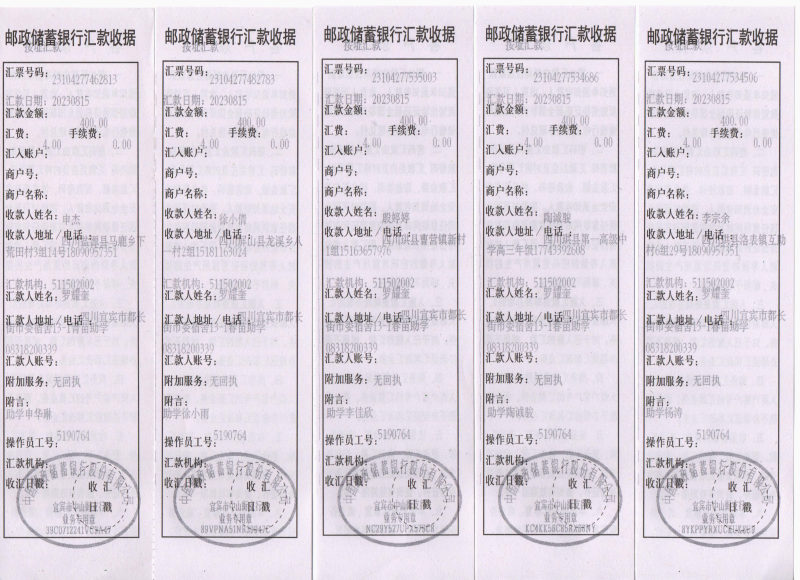 邮政储蓄银行汇款收据
按址汇款
汇票号码：
23104277462813
汇款日期：20230815
汇款金额：
400.00
汇费： 手续费：
4.00 0.00
汇入账户：
商户号：
商户名称：
收款人姓名：
申杰
收款人地址／电话：
荒田村3组14号18090957351
汇款机构：511502002
汇款人姓名：罗耀奎
汇款人地址／电话：
四川宜宾市都长
街市委宿舍13-1春苗助学
08318200339
汇款人账号：
附加服务：无回执
附言：
助学申华琳
5190764
操作员工号：
汇款机构：
收汇日戳： 收 汇
日 戳
业务专用章
邮政储蓄银行汇款收据
按址汇款
汇票号码：
23104277482783
汇款日期：20230815
汇款金额：
400.00
汇费： 手续费：
4.00 0.00
汇入账户：
商户号：
商户名称：
收款人姓名：
收款人地址／电话：
四川屏山县龙溪乡八
一村2组15181163024
汇款机构：511502002
汇款人姓名：罗耀奎
汇款人地址／电话：
四川宜宾市都长
街市委宿舍13-1春苗助学
08318200339
汇款人账号：
附加服务：无回执
附言：
助学徐小雨
5190764
操作员工号：
汇款机构：
收汇日戳： 收 汇
日 戳
业务专用章
邮政储蓄银行汇款收据
按址汇款
汇票号码：
23104277535003
汇款日期：20230815
汇款金额：
400.00
汇费： 手续费：
4.00 0.00
汇入账户：
商户号：
商户名称：
收款人姓名：
殷婷婷
收款人地址／电话：
四川珙县曹营镇新村
1组15163657976
汇款机构：511502002
汇款人姓名：罗耀奎
汇款人地址／电话：
四川宜宾市都长
街市委宿舍13-1春苗助学
08318200339
汇款人账号：
附加服务：无回执
附言：
助学李佳欣
5190764
操作员工号：
汇款机构：
收汇日戳： 收 汇
日 戳
业务专用章
邮政储蓄银行汇款收据
按址汇款
汇票号码：
23104277534686
汇款日期：20230815
汇款金额：
400.00
汇费： 手续费：
4.00 0.00
汇入账户：
商户号：
商户名称：
收款人姓名：
陶诚骏
收款人地址／电话：
四川珙县第一高级中
学高三年级17743992608
汇款机构：511502002
汇款人姓名：罗耀奎
汇款人地址／电话：
四川宜宾市都长
街市委宿舍13-1春苗助学
08318200339
汇款人账号：
附加服务：无回执
附言：
助学陶诚骏
5190764
操作员工号：
汇款机构：
收汇日戳： 收 汇
日 戳
业务专用章
邮政储蓄银行汇款收据
按址汇款
汇票号码：
23104277534506
汇款日期：20230815
汇款金额：
400.00
汇费： 手续费：
4.00 0.00
汇入账户：
商户号：
商户名称：
收款人姓名：
李宗余
收款人地址／电话：
四川珙县洛表镇互助
村6组29号18090957351
汇款机构：511502002
汇款人姓名：罗耀奎
汇款人地址／电话：
四川宜宾市都长
街市委宿舍13-1春苗助学
08318200339
汇款人账号：
附加服务：无回执
附言：
助学杨涛
5190764
操作员工号：
汇款机构：
收汇日戳： 收 汇
日 戳
业务专用章